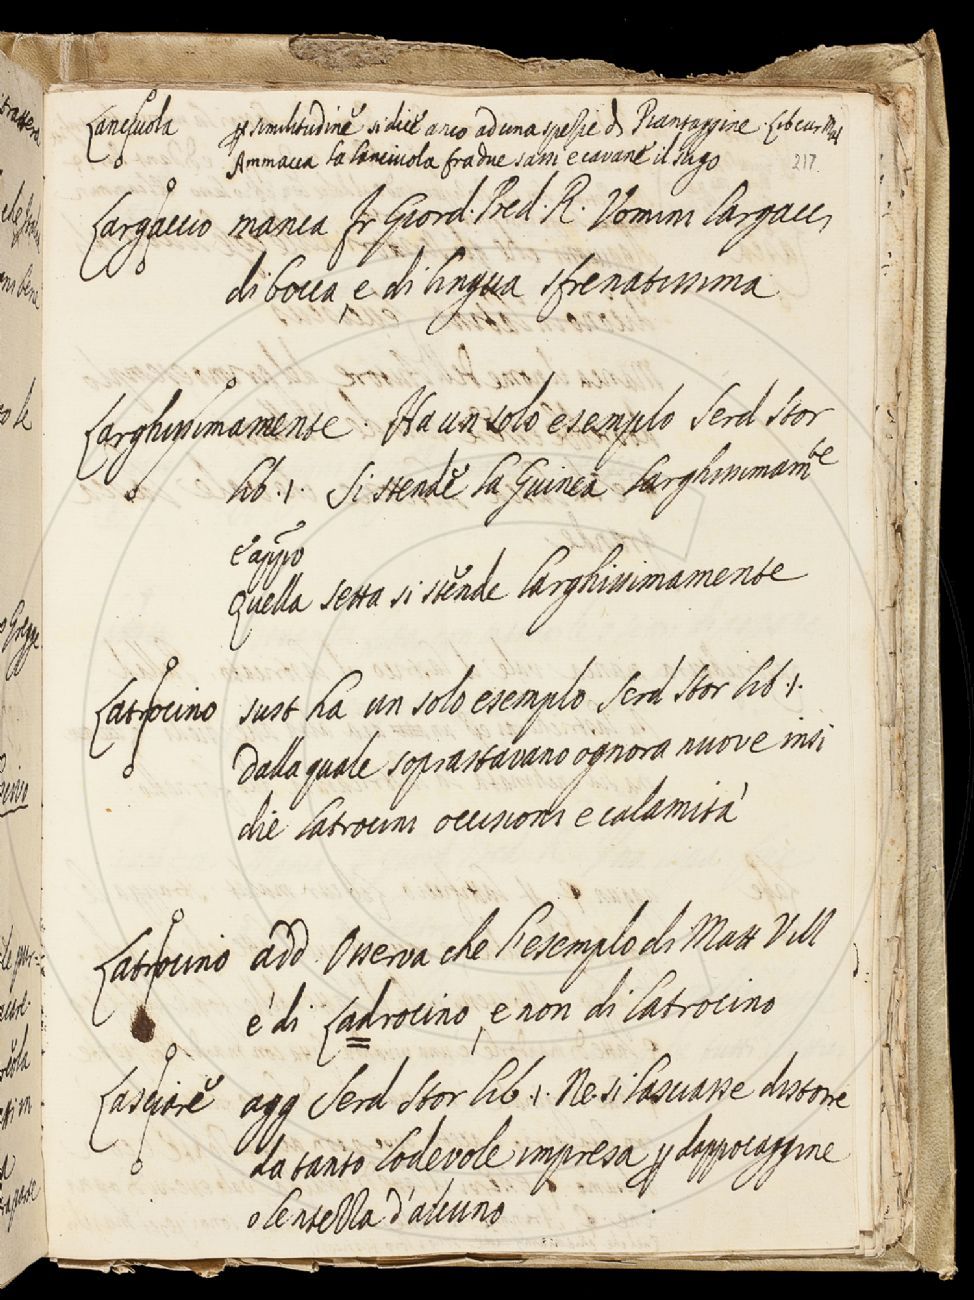 Lanciuola ꝑ similitudine si dice anco ad una spezie di Piantaggine. Lib cur Mal
217.
Ammacca la lanciuola fra due sassi e cavane il sugo
Largaccio manca fr Giord. Pred. R. Uomini largacci
di bocca, e di lingua sfrenatissima
Larghissimamente. Ha un solo esempio Serd Stor
lib. 1. Si stende la Guinea larghissimamte
e appo
Quella setta si stende larghissimamente
Latrocinio sust ha un solo esempio Serd Stor lib. 1.
Dalla quale soprastavano ognora nuove insi
die latrocini occisioni e calamità
Latrocinio add. Osserva che l'esemplo di Matt Vill
é di Ladrocino, e non di latrocino
Lasciare agg Serd Stor lib. 1. Ne si lasciasse distorre
da tanto lodevole impresa ꝑ dappocaggine
o lentezza d'alcuno